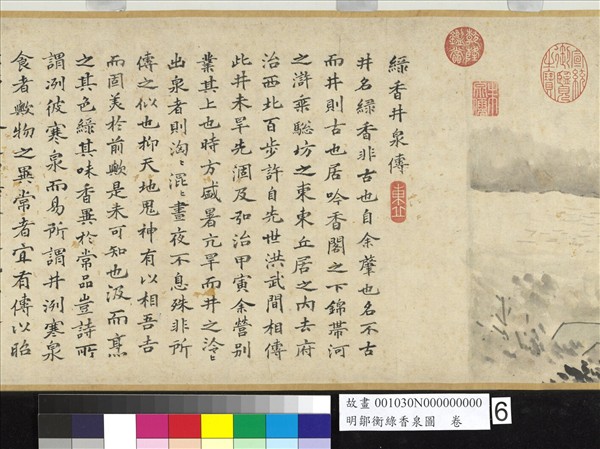 綠香井泉傳
井名綠香非古也自余肇也名不古
而井則古也居吟香閣之下錦帶河
之滸乘驄坊之東東丘居之內去府
治西北百步許自先世洪武間相傳
此井未旱先涸及弘治甲寅余營別
業其上也時方盛暑亢旱而井之泠〻
出泉者則洶〻混〻晝夜不息殊非所
傳之似也抑天地鬼神有以相吾吉
而固美於前歟是未可知也汲而烹
之其色綠其味香異於常品豈詩所
謂洌彼寒泉而易所謂井洌寒泉
食者歟物之異常者宜有傳以昭
宣統御覽之寶
故畫 001030N000000000
明鄒衡綠香泉圖 卷
6